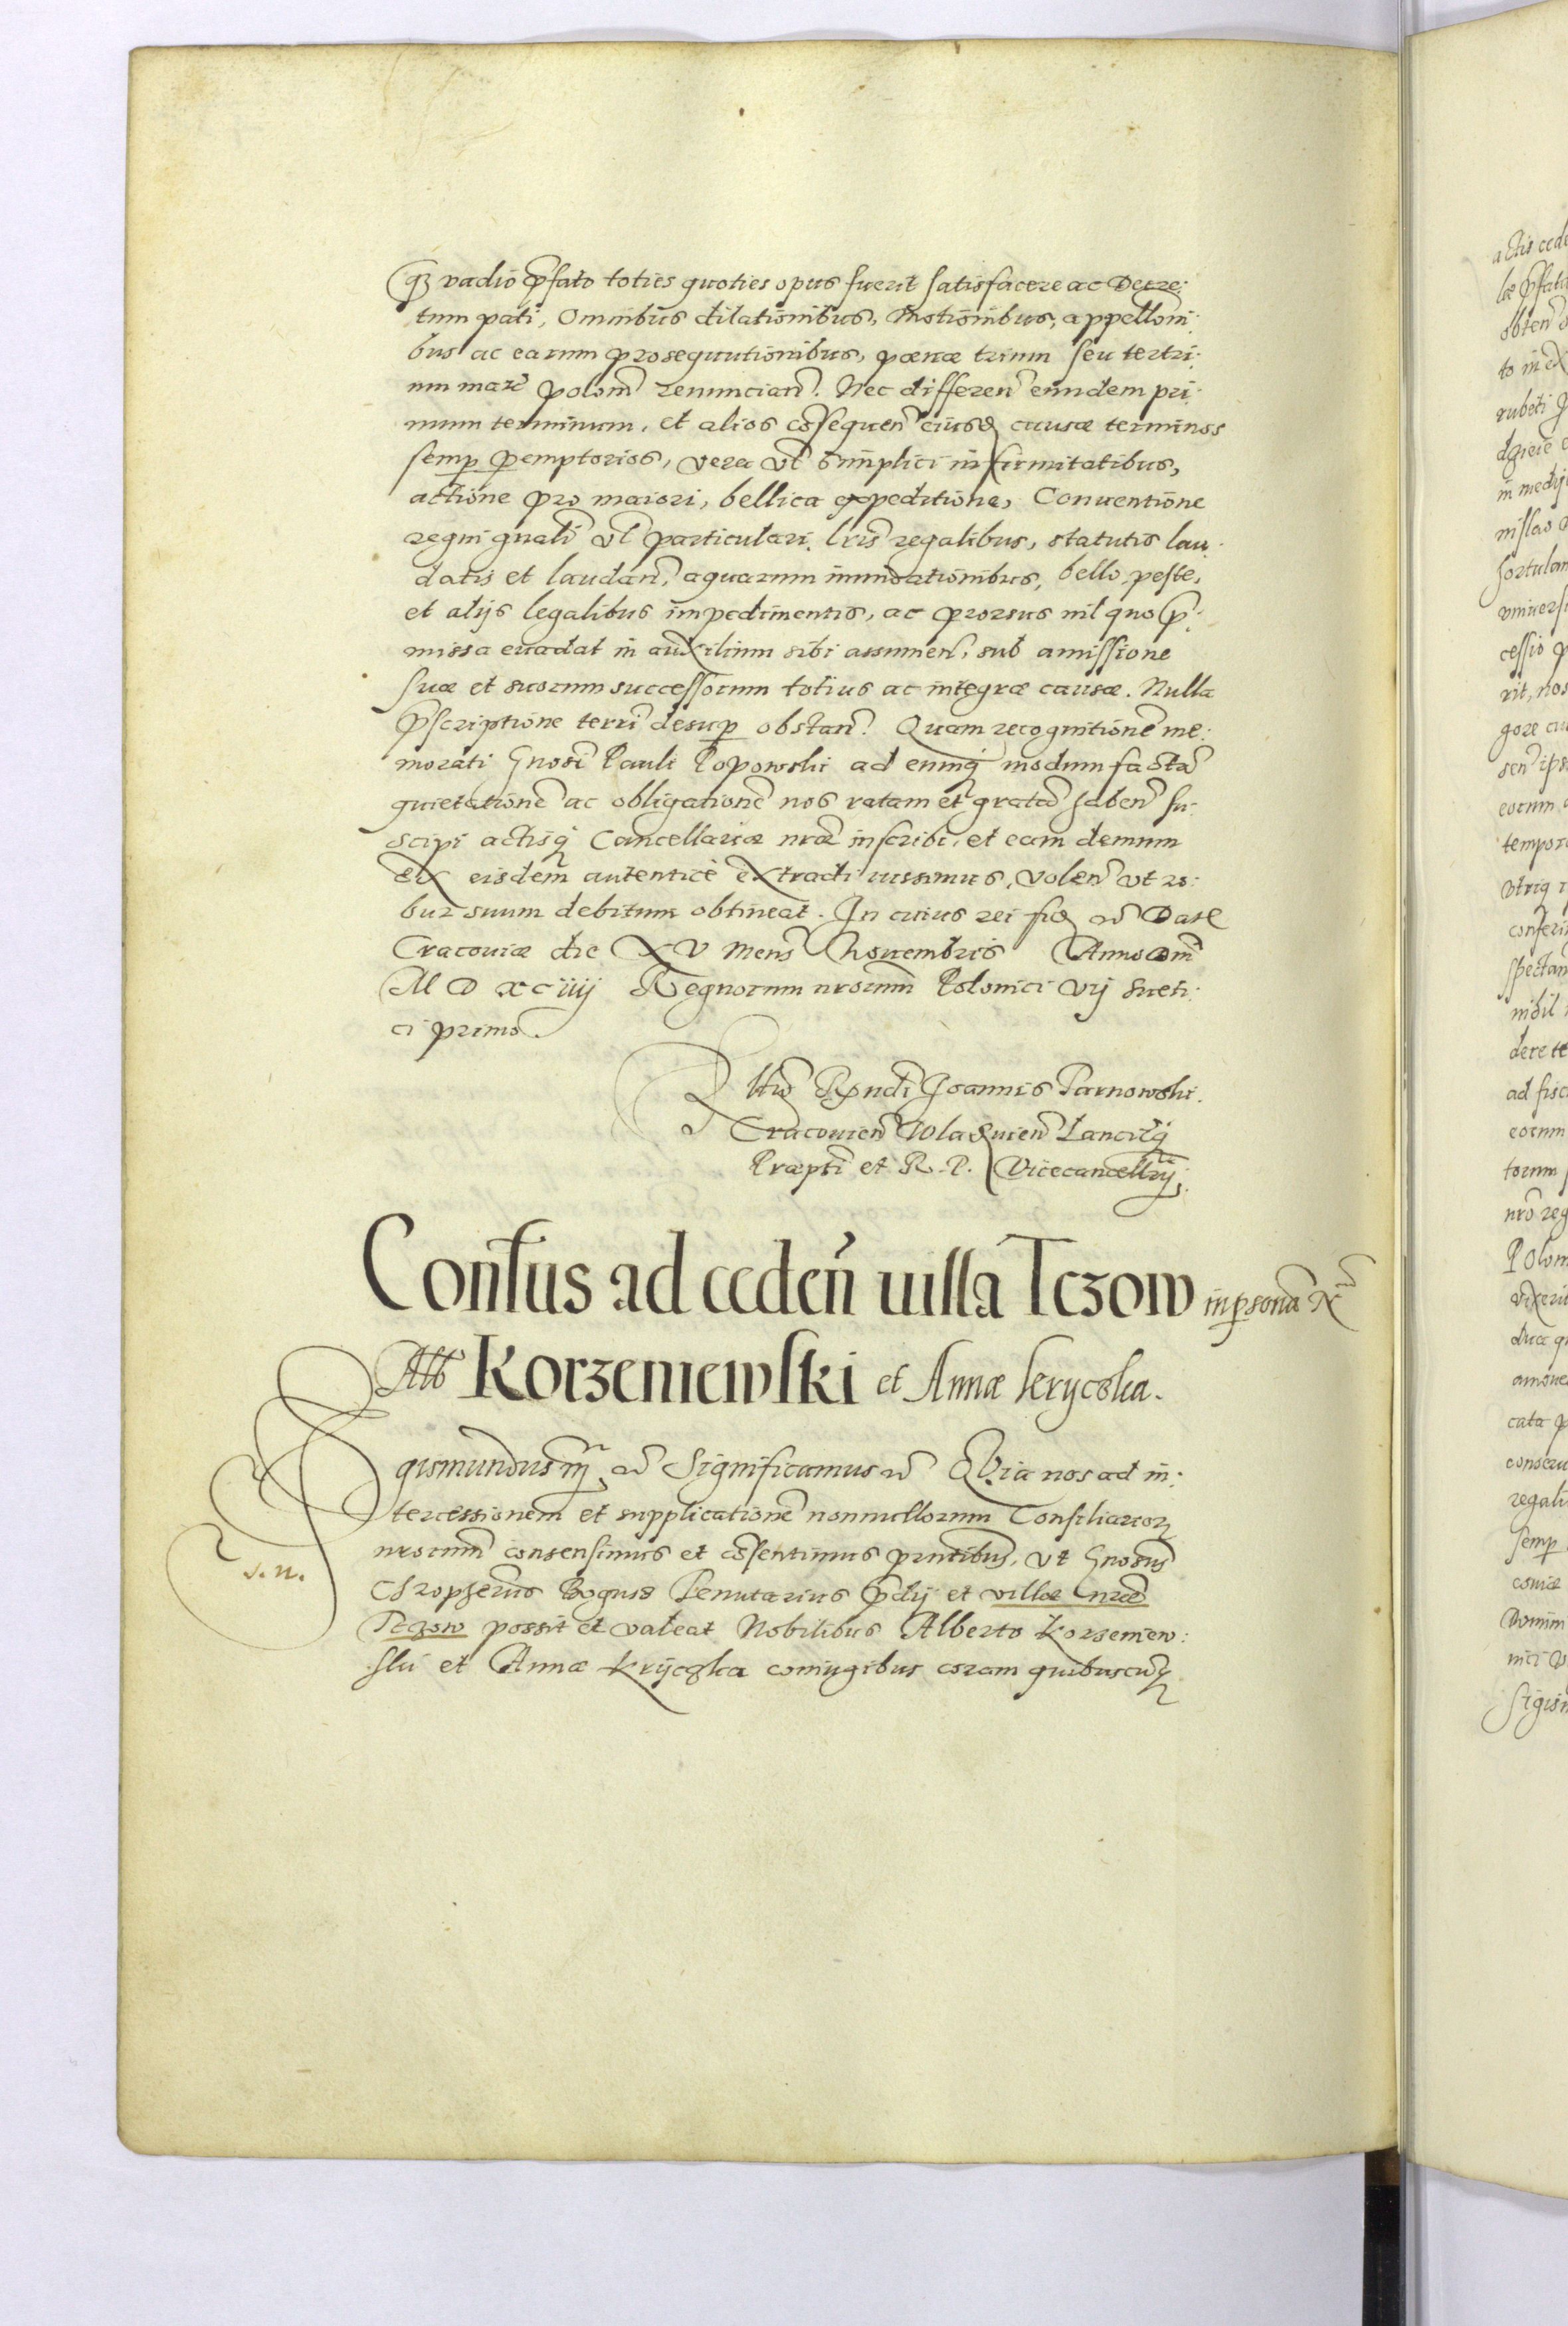 q3 vadio p̃fato toties quoties opus fuerit satisfacere ac Decre:
tum pati, Omnibus dilationibus, Motionibus, appellõni:
bus ac earum prosequutionibus, pœnæ trium seu tertri:
um marc̃ polon̄ renuncian̄. Nec differen̄ eundem pri:
mum terminum, et alios cõsequen̄ eiusd̃ causæ terminos
semp̱ p̱emptorios, vera vl̃ simplici infirmitatibus,
actione pro maiori, bellica expeditione, Conuentione
regni gnãli vl̃ particulari, lr̃is regalibus, statutis lau:
datis et laudan̄, aquarum inundationibus, bello, peste,
et alijs legalibus impedimentis, ac prorsus nil quo p̃:
missa euadat in auxilium sibi assumen̄, sub amissione
suæ et suorum successorum totius ac integræ causæ. Nulla
p̃scriptione terr̃i desup̱ obstan̄. Quam recognitionẽ me:
morati Gnõsi Pauli Popowski ad eumq̃ modum factã
quietationẽ ac obligationẽ nos ratam et gratã haben̄ su:
scipi actisq̃ Cancellariæ nr̃æ inscribi, et eam demum
ex eisdem autenticè extradi iussimus, volen̄ vt ro:
bur suum debitum obtineat. In cuius rei fid̃ &c̃ Dat̃
Cracouiæ die XV Mens̃ Nouembris Anno Dñi
M D xc iiij Regnorum nr̃orum Polonici vij Sueti:
ci primo.
Rltio Rx̃ndi Joannis Tarnowski.
Cracouien̄ Wladislauien̄ Lancitq̃
Præp̃ti et R. P. Vicecancellrij.
Consũs ad ceden̄ uillã Tczow in p̱sonã N.
Alb Korzeniewski et Annæ kryczka.
Sigismundus iij &c̃ Significamus &c̃ Quia nos ad in:
tercessionem et supplicationẽ nonnullorum Consiliarior̃
nr̃orum consensimus et cõsentimus p̃ntibus, vt Gnõsus
Chropherus Bogusz Tenutarius p̃dij et villæ nr̃æ
Tczow possit et valeat Nobilibus Alberto Korzeniew:
ski et Annæ Kryczka coniugibus coram quibuscũq̃
s. n.